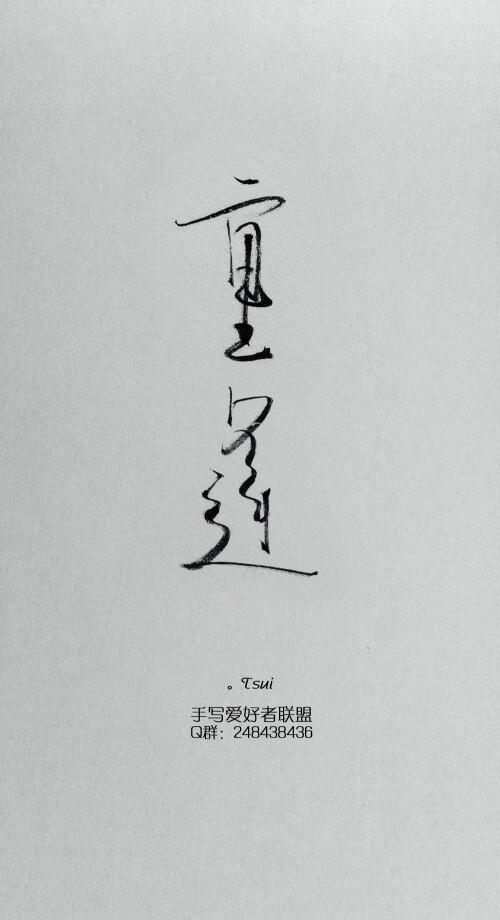 重逢
。Tsui
手写爱好者联盟
Q群：248438436